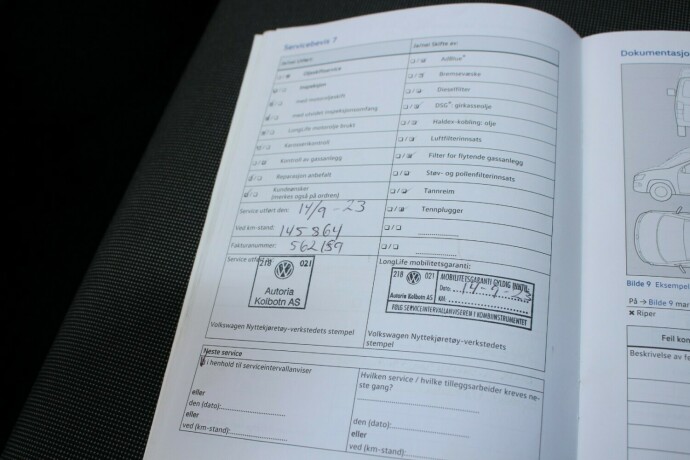 Servicebevis 7
Service utført:
Service Skifte av:
Oppstartservice
AdBlue®
Inspeksjon
Bremsevæske
med motoroljeskift
Dieselfilter
med utvidet inspeksjonsomfang
DSG®: girkasseolje
LongLife motorolje brukt
Haldex-kobling: olje
Karosserikontroll
Luftfilterinnsats
Kontroll av gassanlegg
Filter for flytende gassanlegg
Reparasjon anbefalt
Støv- og pollenfilterinnsats
Kundeønsker
(merkes også på ordren)
Tannreim
Service utført den: 14/9-23
Tennplugger
Ved km-stand: 145864
Fakturanummer: 562159
Service utført
LongLife mobilitetsgaranti:
218 021
Autoria
Kolbotn AS
218 021
Autoria Kolbotn AS
MOBILITETSGARANTI GYLDIG INNTIL:
Dato: 14-9-25
KM:
FØLG SERVICEINTERVALLANVISEREN I KOMBIINSTRUMENTET
Volkswagen Nyttekjøretøy-verkstedets stempel
Volkswagen Nyttekjøretøy-verkstedets
stempel
Neste service
i henhold til serviceintervallanviser
eller
den (dato):
eller
ved (km-stand):
Hvilken service / hvilke tilleggsarbeider kreves ne-
ste gang?
eller
den (dato):
eller
ved (km-stand):
Dokumentasjo
Bilde 9 Eksempel
På → Bilde 9 mar
✖ Riper
Feil kon
Beskrivelse av fe